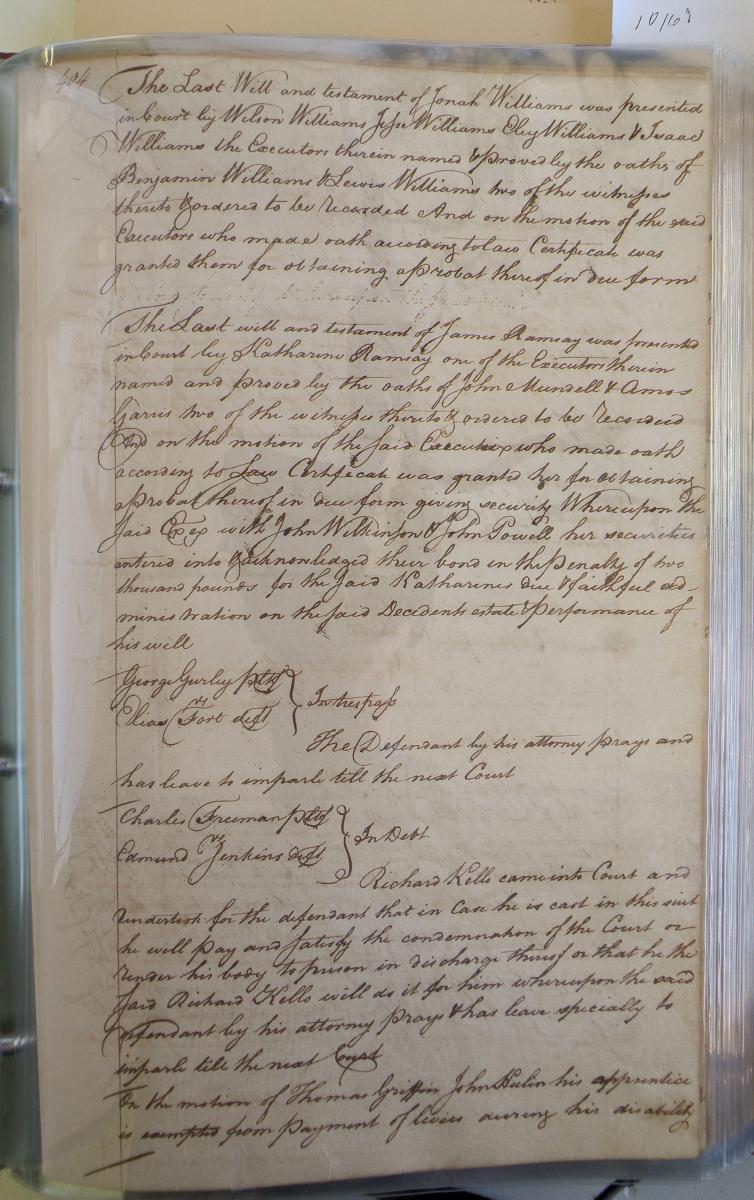 404
The Last Will and testament of Jonah Williams was presented
in Court by Wilson Williams Jesse Williams Eley Williams & Isaac
Williams the Executors therein named & proved by the oaths of
Benjamin Williams & Lewis Williams two of the witnesses
thereto & ordered to be recorded And on the motion of the said
Executors who made oath according to law Certificate was
granted them for obtaining a Probat thereof in due form
The Last will and testament of James Ramsay was presented
in Court by Katharine Ramsay one of the Executors therein
named and proved by the oaths of John Mundell & Amos
Garris two of the witnesses thereto & ordered to be recorded
And on the motion of the said Executrix who made oath
according to Law Certificate was granted her for obtaining
a Probat thereof in due form giving security Whereupon the
said Exex with John Wilkinson & John Powell her securities
entered into & acknowledged their bond in the penalty of two
thousand pounds for the said Katharines due & faithful ad-
ministration on the said Decedents estate & Performance of
his will
George Gurley pltf
vs
Elias Fort deft
In trespass
The Defendant by his attorney prays and
has leave to imparle till the next Court
Charles Freeman pltf
vs
Edmund Jenkins deft
In Debt
Richard Kello came into Court and
undertook for the defendant that in case he is cast in this suit
he will pay and satisfy the condemnation of the Court or
render his body to prison in discharge thereof or that he the
said Richard Kello will do it for him whereupon the said
defendant by his attorney prays & has leave specially to
imparle till the next Court
On the motion of Thomas Griffin John Hulin his apprentice
is exempted from payment of levies during his disability